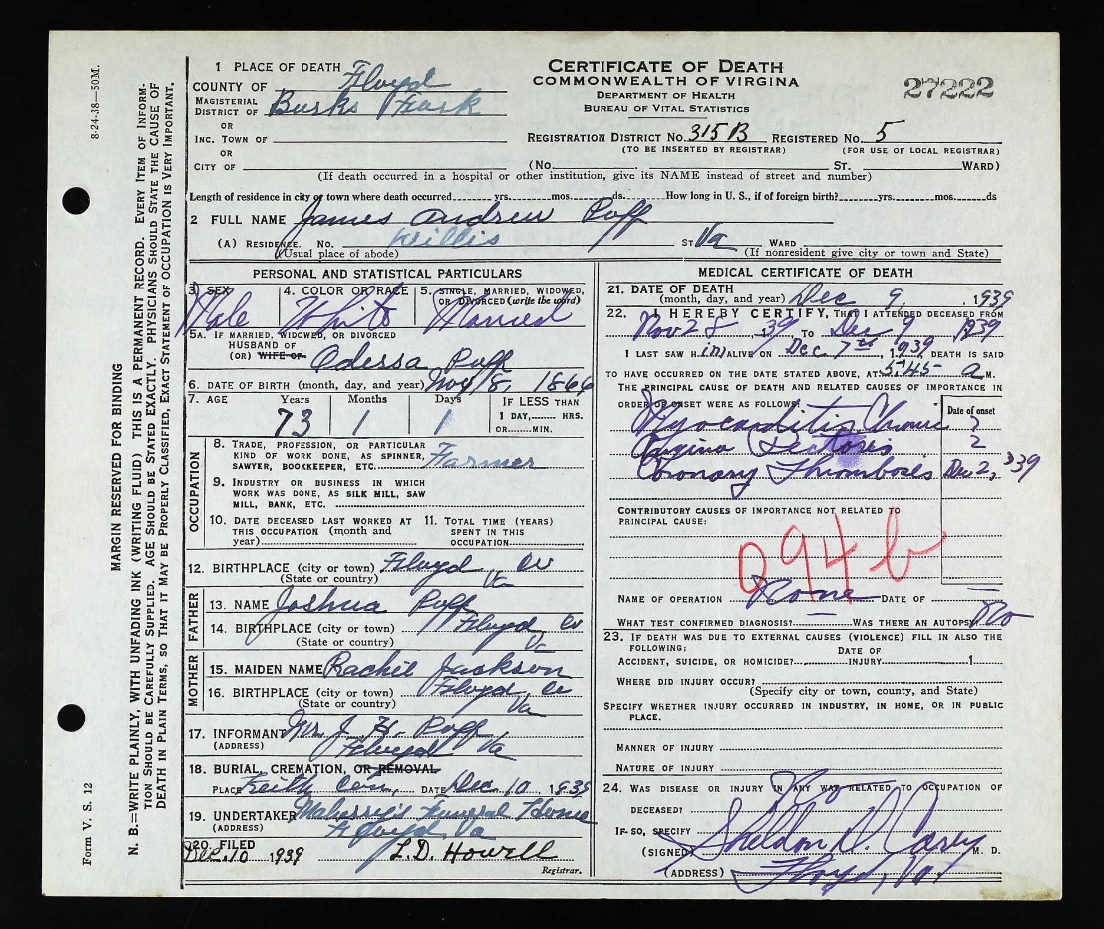 1 PLACE OF DEATH
COUNTY OF Floyd
MAGISTERIAL DISTRICT OF Burks Fork
OR
INC. TOWN OF
OR
CITY OF
CERTIFICATE OF DEATH
COMMONWEALTH OF VIRGINIA
DEPARTMENT OF HEALTH
BUREAU OF VITAL STATISTICS
27222
REGISTRATION DISTRICT NO. 315 B REGISTERED NO. 5
(TO BE INSERTED BY REGISTRAR) (FOR USE OF LOCAL REGISTRAR)
(No. ST. WARD)
(If death occurred in a hospital or other institution, give its NAME instead of street and number)
Length of residence in city or town where death occurred yrs. mos. ds. How long in U. S., if of foreign birth? yrs. mos. ds
2 FULL NAME James Andrew Poff
(A) RESIDENCE. NO. Willis ST. Va WARD
(Usual place of abode) (If nonresident give city or town and State)
PERSONAL AND STATISTICAL PARTICULARS
3. SEX Male
4. COLOR OR RACE White
5. SINGLE, MARRIED, WIDOWED, OR DIVORCED (write the word) Married
5A. IF MARRIED, WIDOWED, OR DIVORCED
HUSBAND OF
(OR) WIFE OF Odessa Poff
6. DATE OF BIRTH (month, day, and year) Nov 8, 1866
7. AGE Years Months Days IF LESS THAN
73 1 1 1 DAY, HRS.
OR MIN.
OCCUPATION
8. TRADE, PROFESSION, OR PARTICULAR
KIND OF WORK DONE, AS SPINNER,
SAWYER, BOOKKEEPER, ETC. Farmer
9. INDUSTRY OR BUSINESS IN WHICH
WORK WAS DONE, AS SILK MILL, SAW
MILL, BANK, ETC.
10. DATE DECEASED LAST WORKED AT
THIS OCCUPATION (month and
year)
11. TOTAL TIME (YEARS)
SPENT IN THIS
OCCUPATION
12. BIRTHPLACE (city or town) Floyd Co
(State or country) Va
FATHER
13. NAME Joshua Poff
14. BIRTHPLACE (city or town) Floyd Co
(State or country) Va
MOTHER
15. MAIDEN NAME Rachel Jackson
16. BIRTHPLACE (city or town) Floyd Co
(State or country) Va
17. INFORMANT Mr J. H. Poff
(ADDRESS) Floyd Va
18. BURIAL, CREMATION, OR REMOVAL
PLACE Keith Cem, DATE Dec 10, 1939
19. UNDERTAKER Funeral Home
(ADDRESS) Floyd, Va
20. FILED
Dec. 10 1939 L. D. Howell
Registrar.
MEDICAL CERTIFICATE OF DEATH
21. DATE OF DEATH
(month, day, and year) Dec 9, 1939
22. I HEREBY CERTIFY, THAT I ATTENDED DECEASED FROM
Nov 28, 39 TO Dec 9 1939
I LAST SAW H im ALIVE ON Dec 7th, 1939, DEATH IS SAID
TO HAVE OCCURRED ON THE DATE STATED ABOVE, AT 5:45 a M.
THE PRINCIPAL CAUSE OF DEATH AND RELATED CAUSES OF IMPORTANCE IN
ORDER OF ONSET WERE AS FOLLOWS: Date of onset
Myocarditis Chronic ?
Angina Pectoris ?
Coronary Thrombosis Dec 2, 39
CONTRIBUTORY CAUSES OF IMPORTANCE NOT RELATED TO
PRINCIPAL CAUSE:
94 b
NAME OF OPERATION None DATE OF
WHAT TEST CONFIRMED DIAGNOSIS? WAS THERE AN AUTOPSY No
23. IF DEATH WAS DUE TO EXTERNAL CAUSES (VIOLENCE) FILL IN ALSO THE
FOLLOWING: DATE OF
ACCIDENT, SUICIDE, OR HOMICIDE? INJURY 1
WHERE DID INJURY OCCUR?
(Specify city or town, county, and State)
SPECIFY WHETHER INJURY OCCURRED IN INDUSTRY, IN HOME, OR IN PUBLIC
PLACE.
MANNER OF INJURY
NATURE OF INJURY
24. WAS DISEASE OR INJURY IN ANY WAY RELATED TO OCCUPATION OF
DECEASED? No
IF SO, SPECIFY
(SIGNED) Sheldon D. Casey M. D.
(ADDRESS) Floyd, Va.
8-24-38—50M.
MARGIN RESERVED FOR BINDING
N. B.—WRITE PLAINLY, WITH UNFADING INK (WRITING FLUID) THIS IS A PERMANENT RECORD. EVERY ITEM OF INFORM-
TION SHOULD BE CAREFULLY SUPPLIED. AGE SHOULD BE STATED EXACTLY. PHYSICIANS SHOULD STATE THE CAUSE OF
DEATH IN PLAIN TERMS, SO THAT IT MAY BE PROPERLY CLASSIFIED, EXACT STATEMENT OF OCCUPATION IS VERY IMPORTANT.
Form V. S. 12